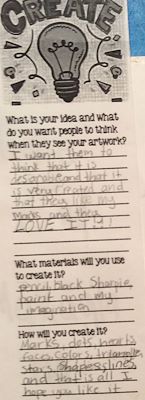 CREATE
What is your idea and what
do you want people to think
when they see your artwork?
I want them to
think that it is
and that it
is very created and
that they like my
and they
LOVE IT!!
What materials will you use
to create it?
pencil, Black Sharpie,
paint and my
imagination
How will you create it?
Marks, dots, hearts
faces, colors, triangle,
stars, shapes, lines,
and that is all I
hope you like it